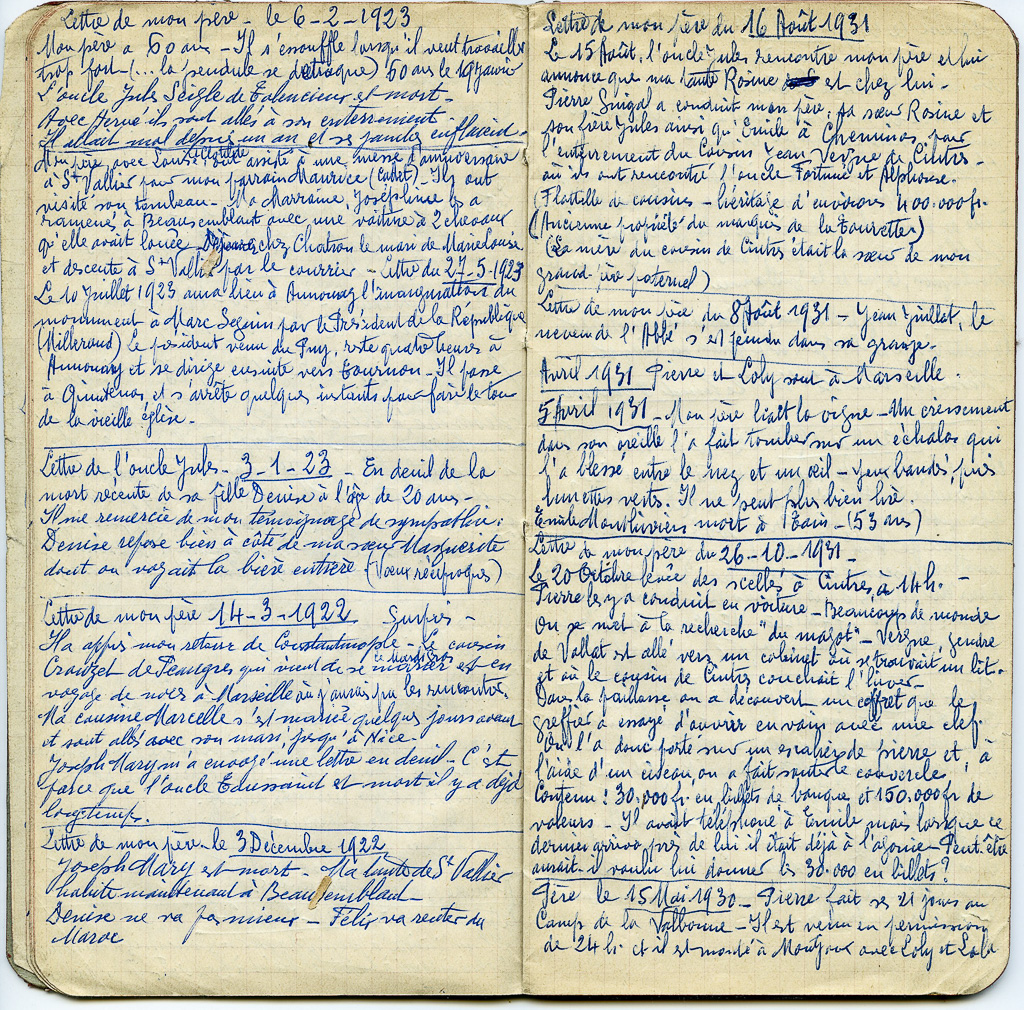 Lettre de mon père - le 6-2-1923
Mon père a 60 ans - Il s'essouffle lorsqu'il veut travailler
trop fort - (... la pendule se détraque) 60 ans le 19 janvier
L'oncle Jules Seigle de Talencieux est mort -
Avec Hervé ils sont allés à son enterrement -
Il allait mal depuis un an et ses jambes enflaient -
Mon père avec Louise et Claude ont assisté à une messe d'anniversaire
à St Vallier pour mon parrain Maurice (Cadet) - Ils ont
visité son tombeau - Ma Marraine, Joséphine les a
ramenés à Beausemblant avec une voiture à 2 chevaux
qu'elle avait louée chez Chatron le mari de Marie Louise
et descente à St Vallier par le courrier - Lettre du 27-5-1923
Le 10 Juillet 1923 aura lieu à Annonay l'inauguration du
monument à Marc Seguin par le Président de la République
(Millerand) Le président venu du Puy, reste quatre heures à
Annonay et se dirige ensuite vers Tournon - Il passe
à Quintenas, et s'arrête quelques instants pour faire le tour
de la vieille église.
Lettre de l'oncle Jules - 3-1-23 - En deuil de la
mort récente de sa fille Denise à l'âge de 20 ans -
Il me remercie de mon témoignage de sympathie :
Denise repose bien à côté de ma sœur Marguerite
dont on voyait la bière entière (Vœux réciproques)
Lettre de mon père 14-3-1922 Surpris -
Il a appris mon retour de Constantinople - Le cousin
Crouzet de Peaugres qui vient de se marier le Mardi Gras est en
voyage de noces à Marseille où j'aurais pu les rencontrer.
Ma cousine Marcelle s'est mariée quelques jours avant
et sont allés avec son mari jusqu'à Nice -
Joseph Mary m'a envoyé une lettre en deuil - C'est
parce que l'oncle Toussaint est mort il y a déjà
longtemps.
Lettre de mon père - le 3 Décembre 1922
Joseph Mary est mort - Ma tante de St Vallier
habite maintenant à Beausemblant -
Denise ne va pas mieux - Félix va rentrer du
Maroc
Lettre de mon père du 16 Août 1931
Le 15 Août, l'oncle Jules rencontre mon père et lui
annonce que ma tante Rosine est chez lui -
Pierre Suigal a conduit mon père, sa sœur Rosine et
son frère Jules ainsi qu'Emile à Cheminas pour
l'enterrement du Cousin Jean Vergne de Cintres -
où ils ont rencontré l'oncle Fortuné et Alphonse.
Flottille de cousins - héritage d'environ 400.000 fr.
(Ancienne propriété du marquis de la Tourrette)
(La mère du cousin de Cintres était la sœur de mon
grand-père paternel)
Lettre de mon père du 8 Août 1931 - Jean Juillat, le
neveu de l'Abbé s'est pendu dans sa grange.
Avril 1931 Pierre et Loly sont à Marseille.
5 Avril 1931 - Mon père liait la vigne - Un crissement
dans son oreille l'a fait tomber sur un échalas qui
l'a blessé entre le nez et un œil - yeux bandés, puis
lunettes vertes. Il ne peut plus bien lire.
Emile Montliviers mort à Tain - (53 ans)
Lettre de mon père du 26-10-1931 -
Le 20 Octobre levée des scellés à Cintres, à 14 h. -
Pierre les y a conduit en voiture - Beaucoup de monde
On se met à la recherche "du magot" - Vergne, gendre
de Vallat est allé vers un cabinet où se trouvait un lit.
et où le cousin de Cintres couchait l'hiver -
Dans la paillasse on a découvert un coffret que le
greffier a essayé d'ouvrir en vain avec une clef.
On l'a donc porté sur un escalier de pierre et, à
l'aide d'un ciseau, on a fait sauter le couvercle,
Contenu : 30.000 fr. en billets de banque et 150.000 fr de
valeurs - Il avait téléphoné à Emile mais lorsque ce
dernier arriva près de lui il était déjà à l'agonie - Peut-être
aurait-il voulu lui donner les 30.000 en billets ?
Père le 15 Mai 1930 - Pierre fait ses 21 jours au
Camp de la Valbonne - Il est venu en permission
de 24 h. et il est monté à Montjoux avec Loly et Lola